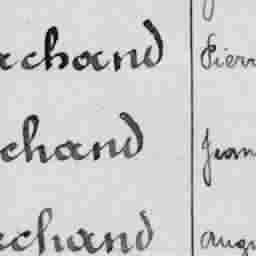 achand Pierr
chand Jean
rchand Augu